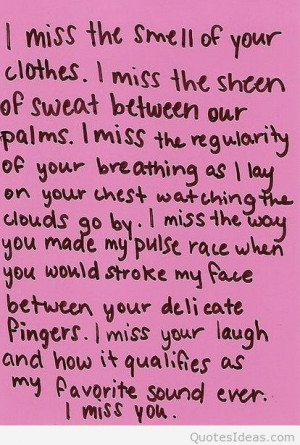 I miss the smell of your
clothes. I miss the sheen
of sweat between our
palms. I miss the regularity
of your breathing as I lay
on your chest watching the
clouds go by. I miss the way
you made my pulse race when
you would stroke my face
between your delicate
fingers. I miss your laugh
and how it qualifies as
my favorite sound ever.
I miss you.
QuotesIdeas.com